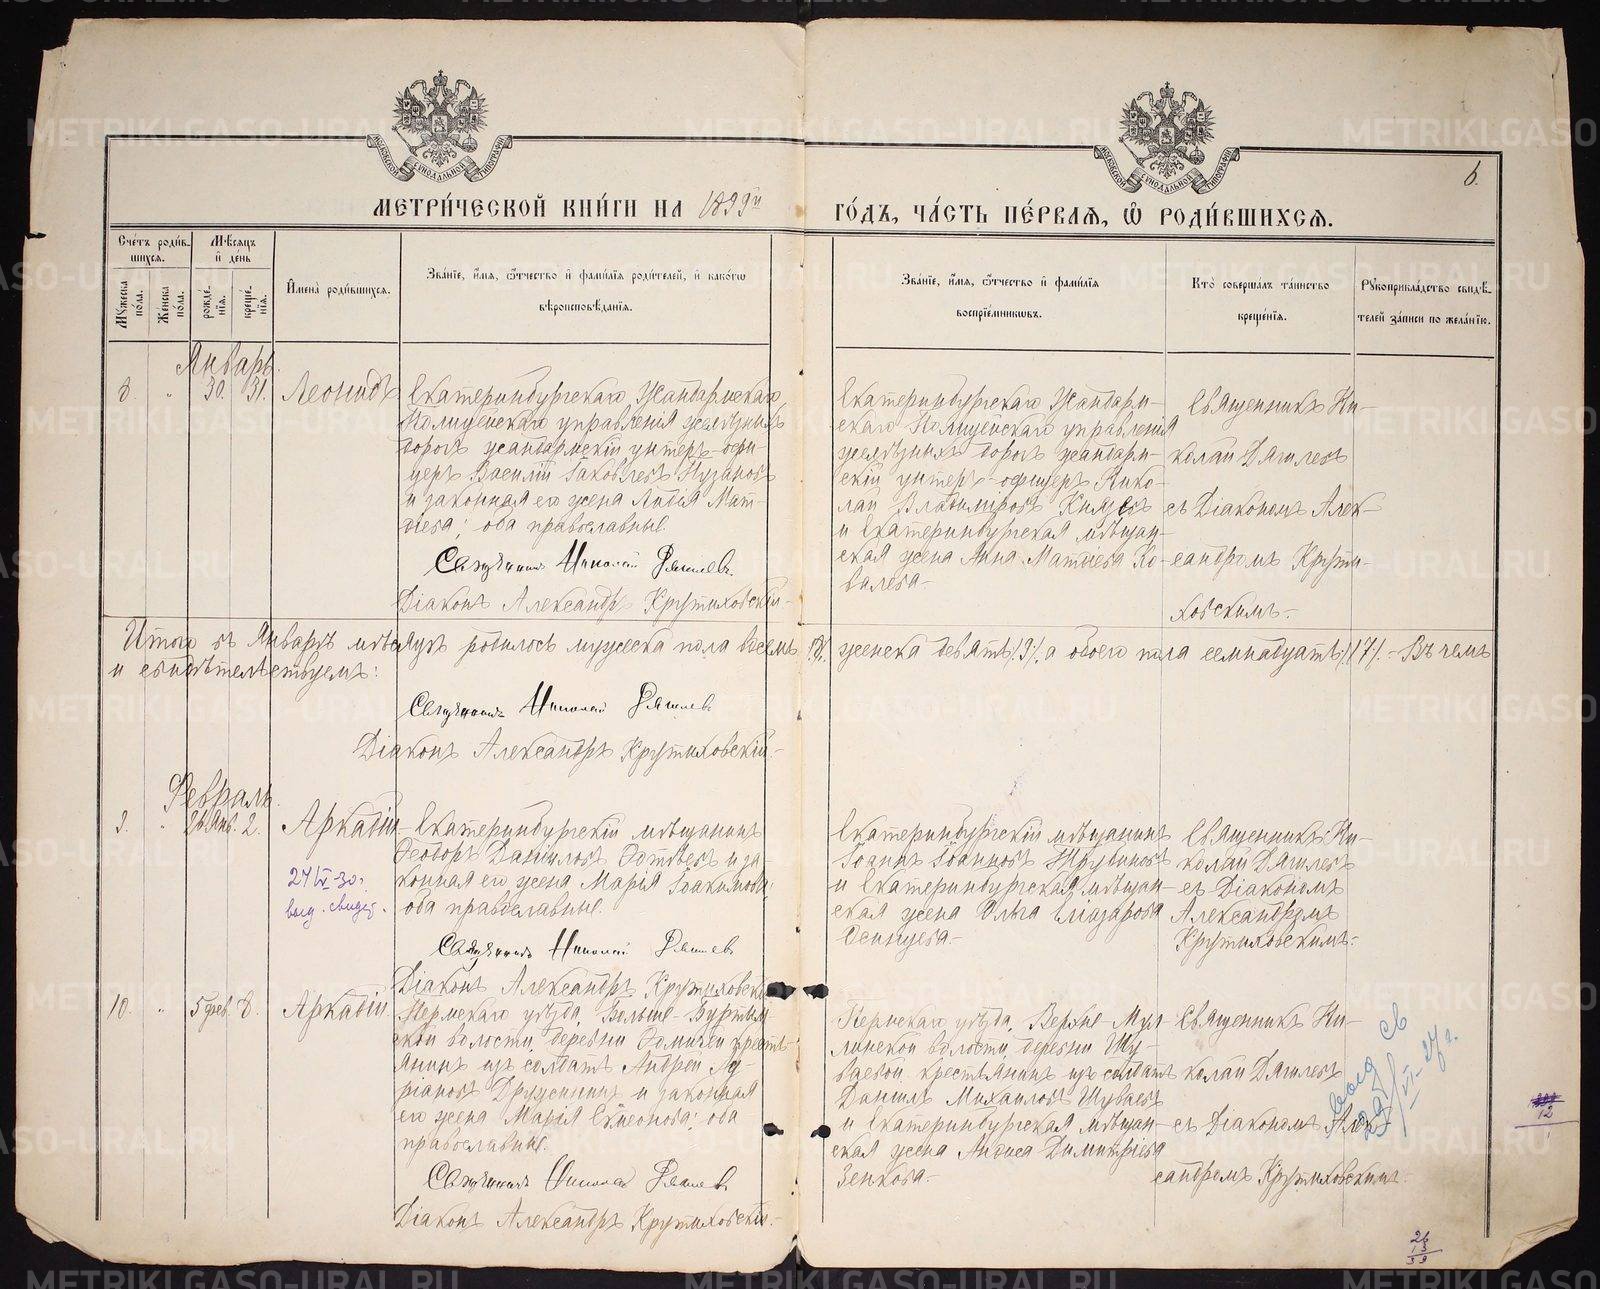 МЕТРИ́ЧЕСКОЙ КНИ́ГИ НА 1899й ГО́ДЪ, ЧА́СТЬ ПЕ́РВАѦ, Ѽ РОДИ́ВШИХСѦ.
6.
Сче́тъ роди́в-
шихсѧ.
Мѣ́сѧцъ
и҆ де́нь
Мꙋ́жеска
по́ла.
Же́нска
по́ла.
рожде́-
нїѧ.
креще́-
нїѧ.
И҆мена̀ роди́вшихсѧ.
Зва́нїе, и҆́мѧ, ѻ҆́тчество и҆ фами́лїѧ роди́телей, и҆ како́гѡ
вѣроисповѣ́данїѧ.
Зва́нїе, и҆́мѧ, ѻ҆́тчество и҆ фами́лїѧ
воспрїе́мникѡвъ.
Кто̀ соверша́лъ та́инство
креще́нїѧ.
Рꙋкоприкла́дство свидѣ́-
телей за́писи по жела́нїю.
Январь.
8. " 30. 31. Леонидъ
Екатеринбургскаго Жандармскаго
Полицейскаго управленія желѣзныхъ
дорогъ жандармскій унтеръ-офи-
церъ Василій Іаковлевъ
и законная его жена Лидія Мат-
ѳіева; оба православные.
Священникъ Николай Дягилевъ.
Діаконъ Александръ Крутиховскій.-
Екатеринбургскаго Жандарм-
скаго Полицейскаго управленія
желѣзныхъ дорогъ жандарм-
скій унтеръ-офицеръ Нико-
лай Владиміровъ Князевъ
и Екатеринбургская мѣщан-
ская жена Анна Матѳіева Ко-
валева.-
Священникъ Ни-
колай Дягилевъ
съ Діакономъ Алек-
сандромъ Крути-
ховскимъ.-
Итого въ Январѣ мѣсяцѣ родилось мужеска пола восемь /8/, женска девять /9/, а обоего пола семнадцать /17/.- Въ чемъ
и свидѣтельствуемъ:
Священникъ Николай Дягилевъ
Діаконъ Александръ Крутиховскій.-
Февраль.
9. " 26 Янв. 2. Аркадій.
24/VI-30 г.
выд. свидет.
Екатеринбургскій мѣщанинъ
Ѳеодоръ Даніиловъ и за-
конная его жена Марія Іоакимова;
оба православные.
Священникъ Николай Дягилевъ
Діаконъ Александръ Крутиховскій
Екатеринбургскій мѣщанинъ
Іоаннъ Іоанновъ Трубиновъ
и Екатеринбургская мѣщан-
ская жена Ольга Елазарова
Священникъ Ни-
колай Дягилевъ
съ Діакономъ
Александромъ
Крутиховскимъ.-
10. " 5 фев. 8. Аркадій.
Пермскаго уѣзда, Больше-Буртым-
ской волости, деревни Ѳомичей кресть-
янинъ изъ солдатъ Андрей Ад-
ріановъ Дружининъ и законная
его жена Марія Сѵмеонова; оба
православные.
Священникъ Николай Дягилевъ
Діаконъ Александръ Крутиховскій.-
Пермскаго уѣзда, Верхне-Мул-
линской волости, деревни Шу-
ваевой крестьянинъ изъ солдатъ
Даніилъ Михаиловъ Шуваевъ
и Екатеринбургская мѣщан-
ская жена Анѳиса Димитріева
Зенкова.-
Священникъ Ни-
колай Дягилевъ
съ Діакономъ Алек-
сандромъ Крутиховскимъ.-
выд св
29/VI-27 г.
12
26
13
39